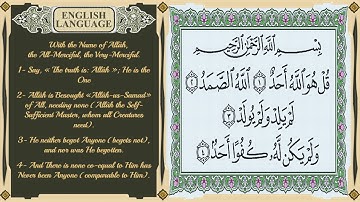 ENGLISH
LANGUAGE
With the Name of Allah,
the All-Merciful, the Very-Merciful.
1- Say, « The truth is: Allah »; He is the
One
2- Allah is Besought «Allah-us-Samad»
of All, needing none ( Allah the Self-
Sufficient Master, whom all Creatures
need).
3- He neither begot Anyone ( begets not),
and nor was He begotten.
4- And There is none co-equal to Him has
Never been Anyone ( comparable to Him).
بِسْمِ ٱللَّهِ ٱلرَّحْمَٰنِ ٱلرَّحِيمِ
قُلْ هُوَ ٱللَّهُ أَحَدٌ ١ ٱللَّهُ ٱلصَّمَدُ ٢
لَمْ يَلِدْ وَلَمْ يُولَدْ ٣
وَلَمْ يَكُن لَّهُۥ كُفُوًا أَحَدٌۢ ٤